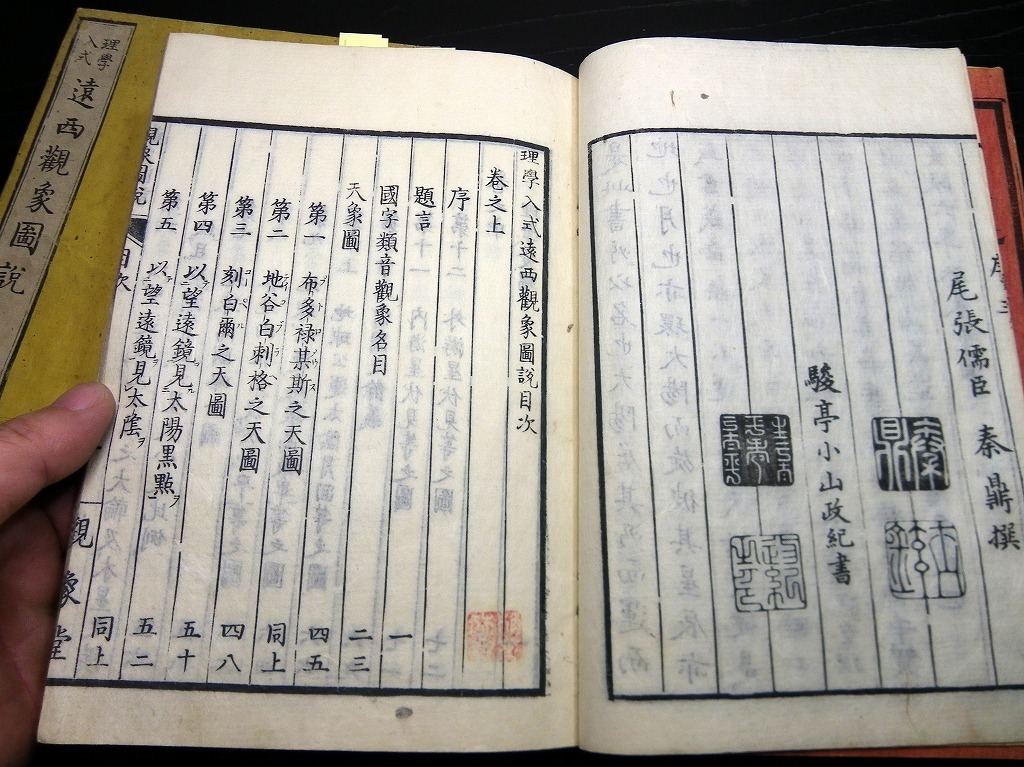 理學
入式
遠西觀象圖說
尾張儒臣 秦鼎撰
駿亭小山政紀書
理學入式遠西觀象圖說目次
卷之上
序 一
題言
國字類音觀象名目 一
天象圖 二三
第一 布多禄某斯之天圖 四五
第二 地谷白刺格之天圖 同上
第三 刻白爾之天圖 四八
第四 以望遠鏡見太陽黒點 五十
第五 以望遠鏡見太陰 五二
同上
觀象圖說
目次
觀象堂